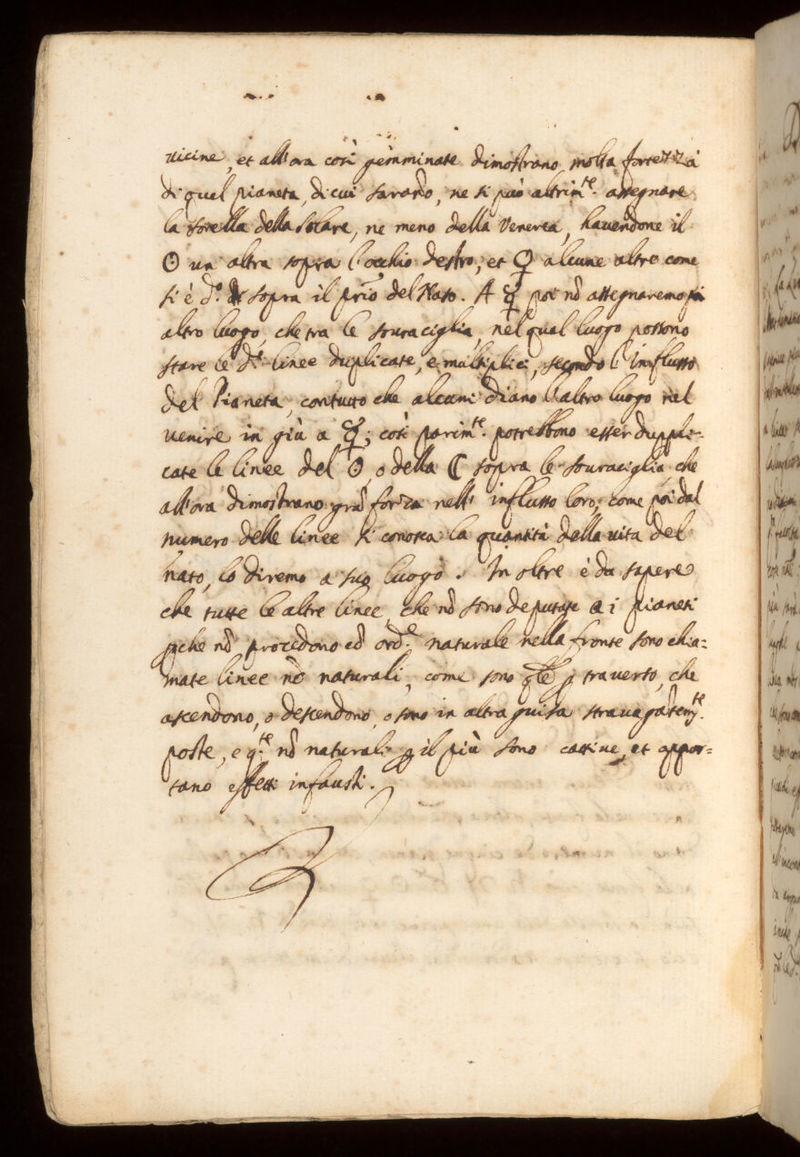 uicine, et all'ora così gemminate dimostrano molta fortezza
di quel pianeta, di cui sarano, ne si può altrim.te assegnare
la sorella della Solare, ne meno della Venerea, hauendone il
☉ un altra sopra l'occhio destro, et ♀ alcune altre come
si è d.o sopra il prio del Naso. A ☿ poi nõ assegnaremo
altro luogo, che tra le souraciglia, nel qual luogo possono
stare le d.e linee duplicate, e multiplici, secondo l'influsso
del Pianeta, contutto che alcuni diano l'altro luogo nel
uenire in giù a ☿; così parim.te potrebbono esser duppli-
cate le linee del ☉, o della ☾ sopra le souraciglia, che
all'ora dimostrano grã forza nell' influsso loro; come poi dal
numero delle linee si conosca la quantità della uita del
nato, lo diremo a suo luogo. In oltre è da sapere
che tutte le altre linee, che nõ sono deputate a i pianeti
pche nõ procedono cõ ord.e naturale nella fronte sono chia=
mate linee nõ naturali, come sono qlle p trauerso, che
ascendono, o descendono, o sono in altra guisa strauagãtem.te
poste, e q.te nõ naturali p il più sono cattiue, et appor=
tano effetti infausti.